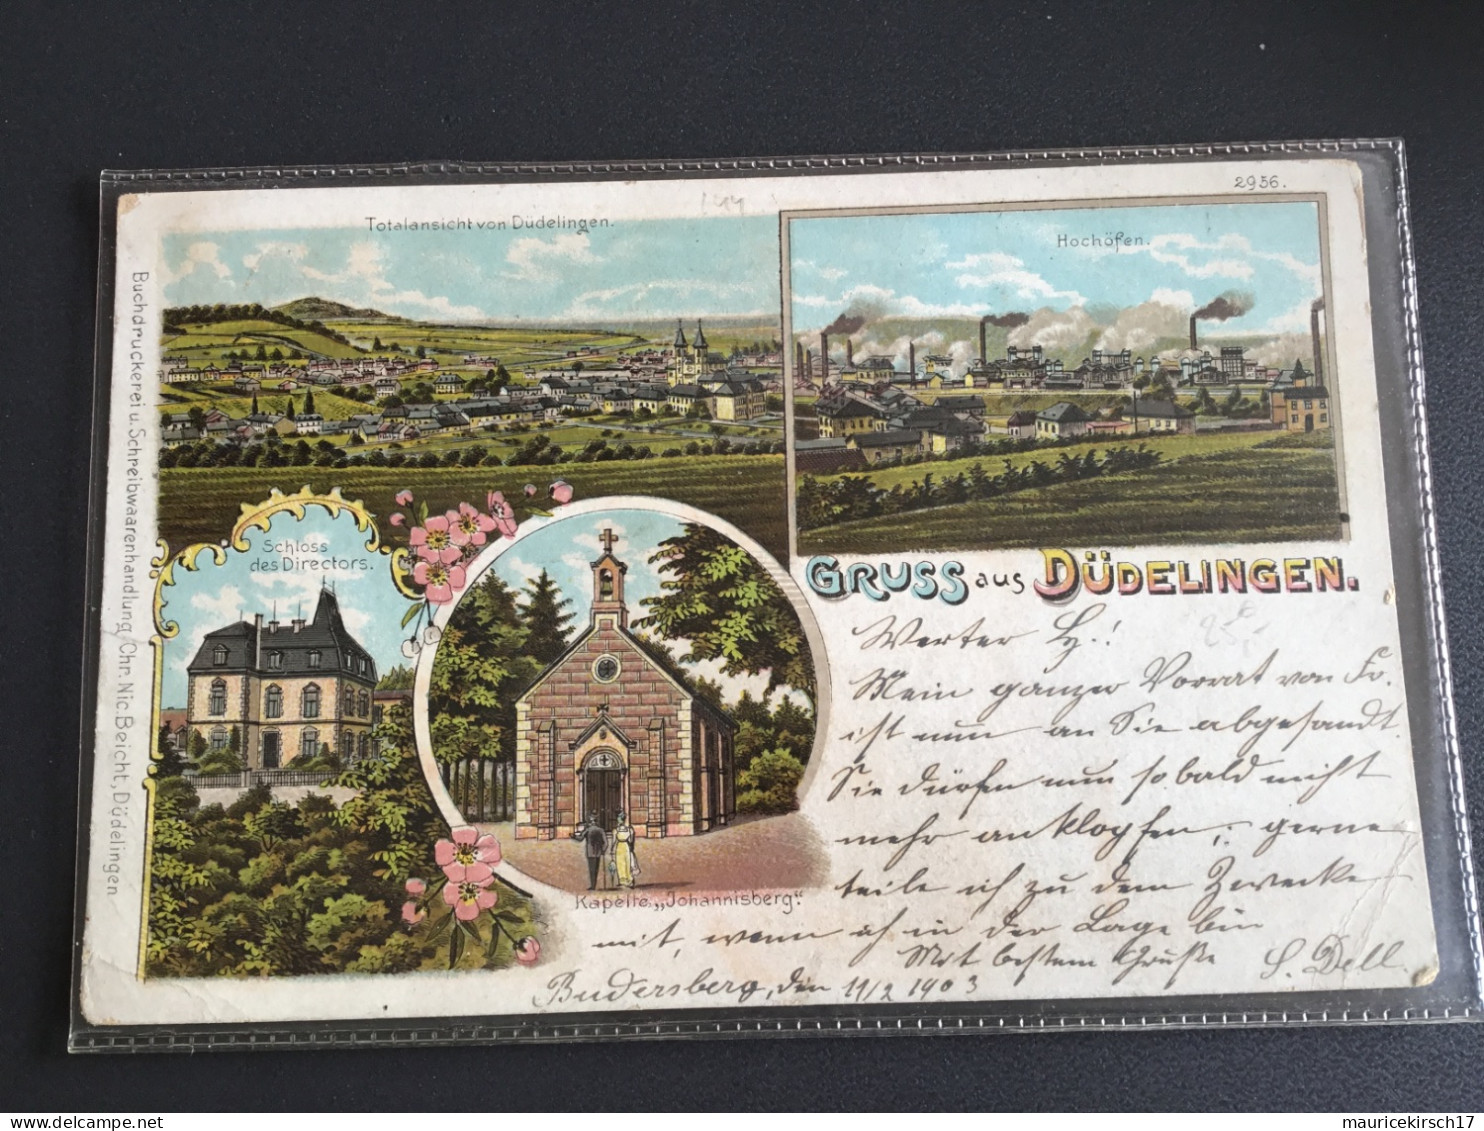 2956.
Totalansicht von Düdelingen.
Hochöfen.
Buchdruckerei u. Schreibwaarenhandlung Chr. Nic. Beicht, Düdelingen
Schloss
des Directors.
Kapelle „Johannisberg“.
GRUSS aus DÜDELINGEN.
Werter H.!
Mein ganzer Vorrat von Fr.
ist nun an Sie abgesandt.
Sie dürfen nun sobald nicht
mehr anklopfen; gerne
teile ich zu dem Zwecke
mit, wenn ich in der Lage bin
Mit bestem Gruße
S. Dell.
Budersberg, den 11/2 1903
delcampe.net
mauricekirsch17